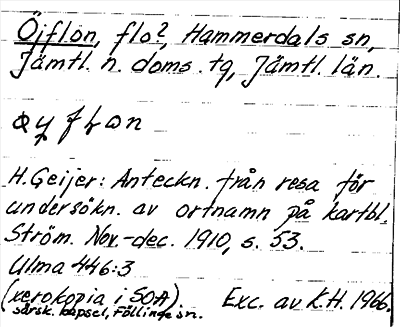 Öjflon, flo?, Hammerdals sn,
Jämtl. n. doms. tg, Jämtl. län.
H. Geijer: Anteckn. från resa för
undersökn. av ortnamn på kartbl.
Ström. Nov.-dec. 1910, s. 53.
Ulma 446:3
(xerokopia i SOA) Exc. av K.H. 1966.
särsk. kapsel, Föllinge sn.